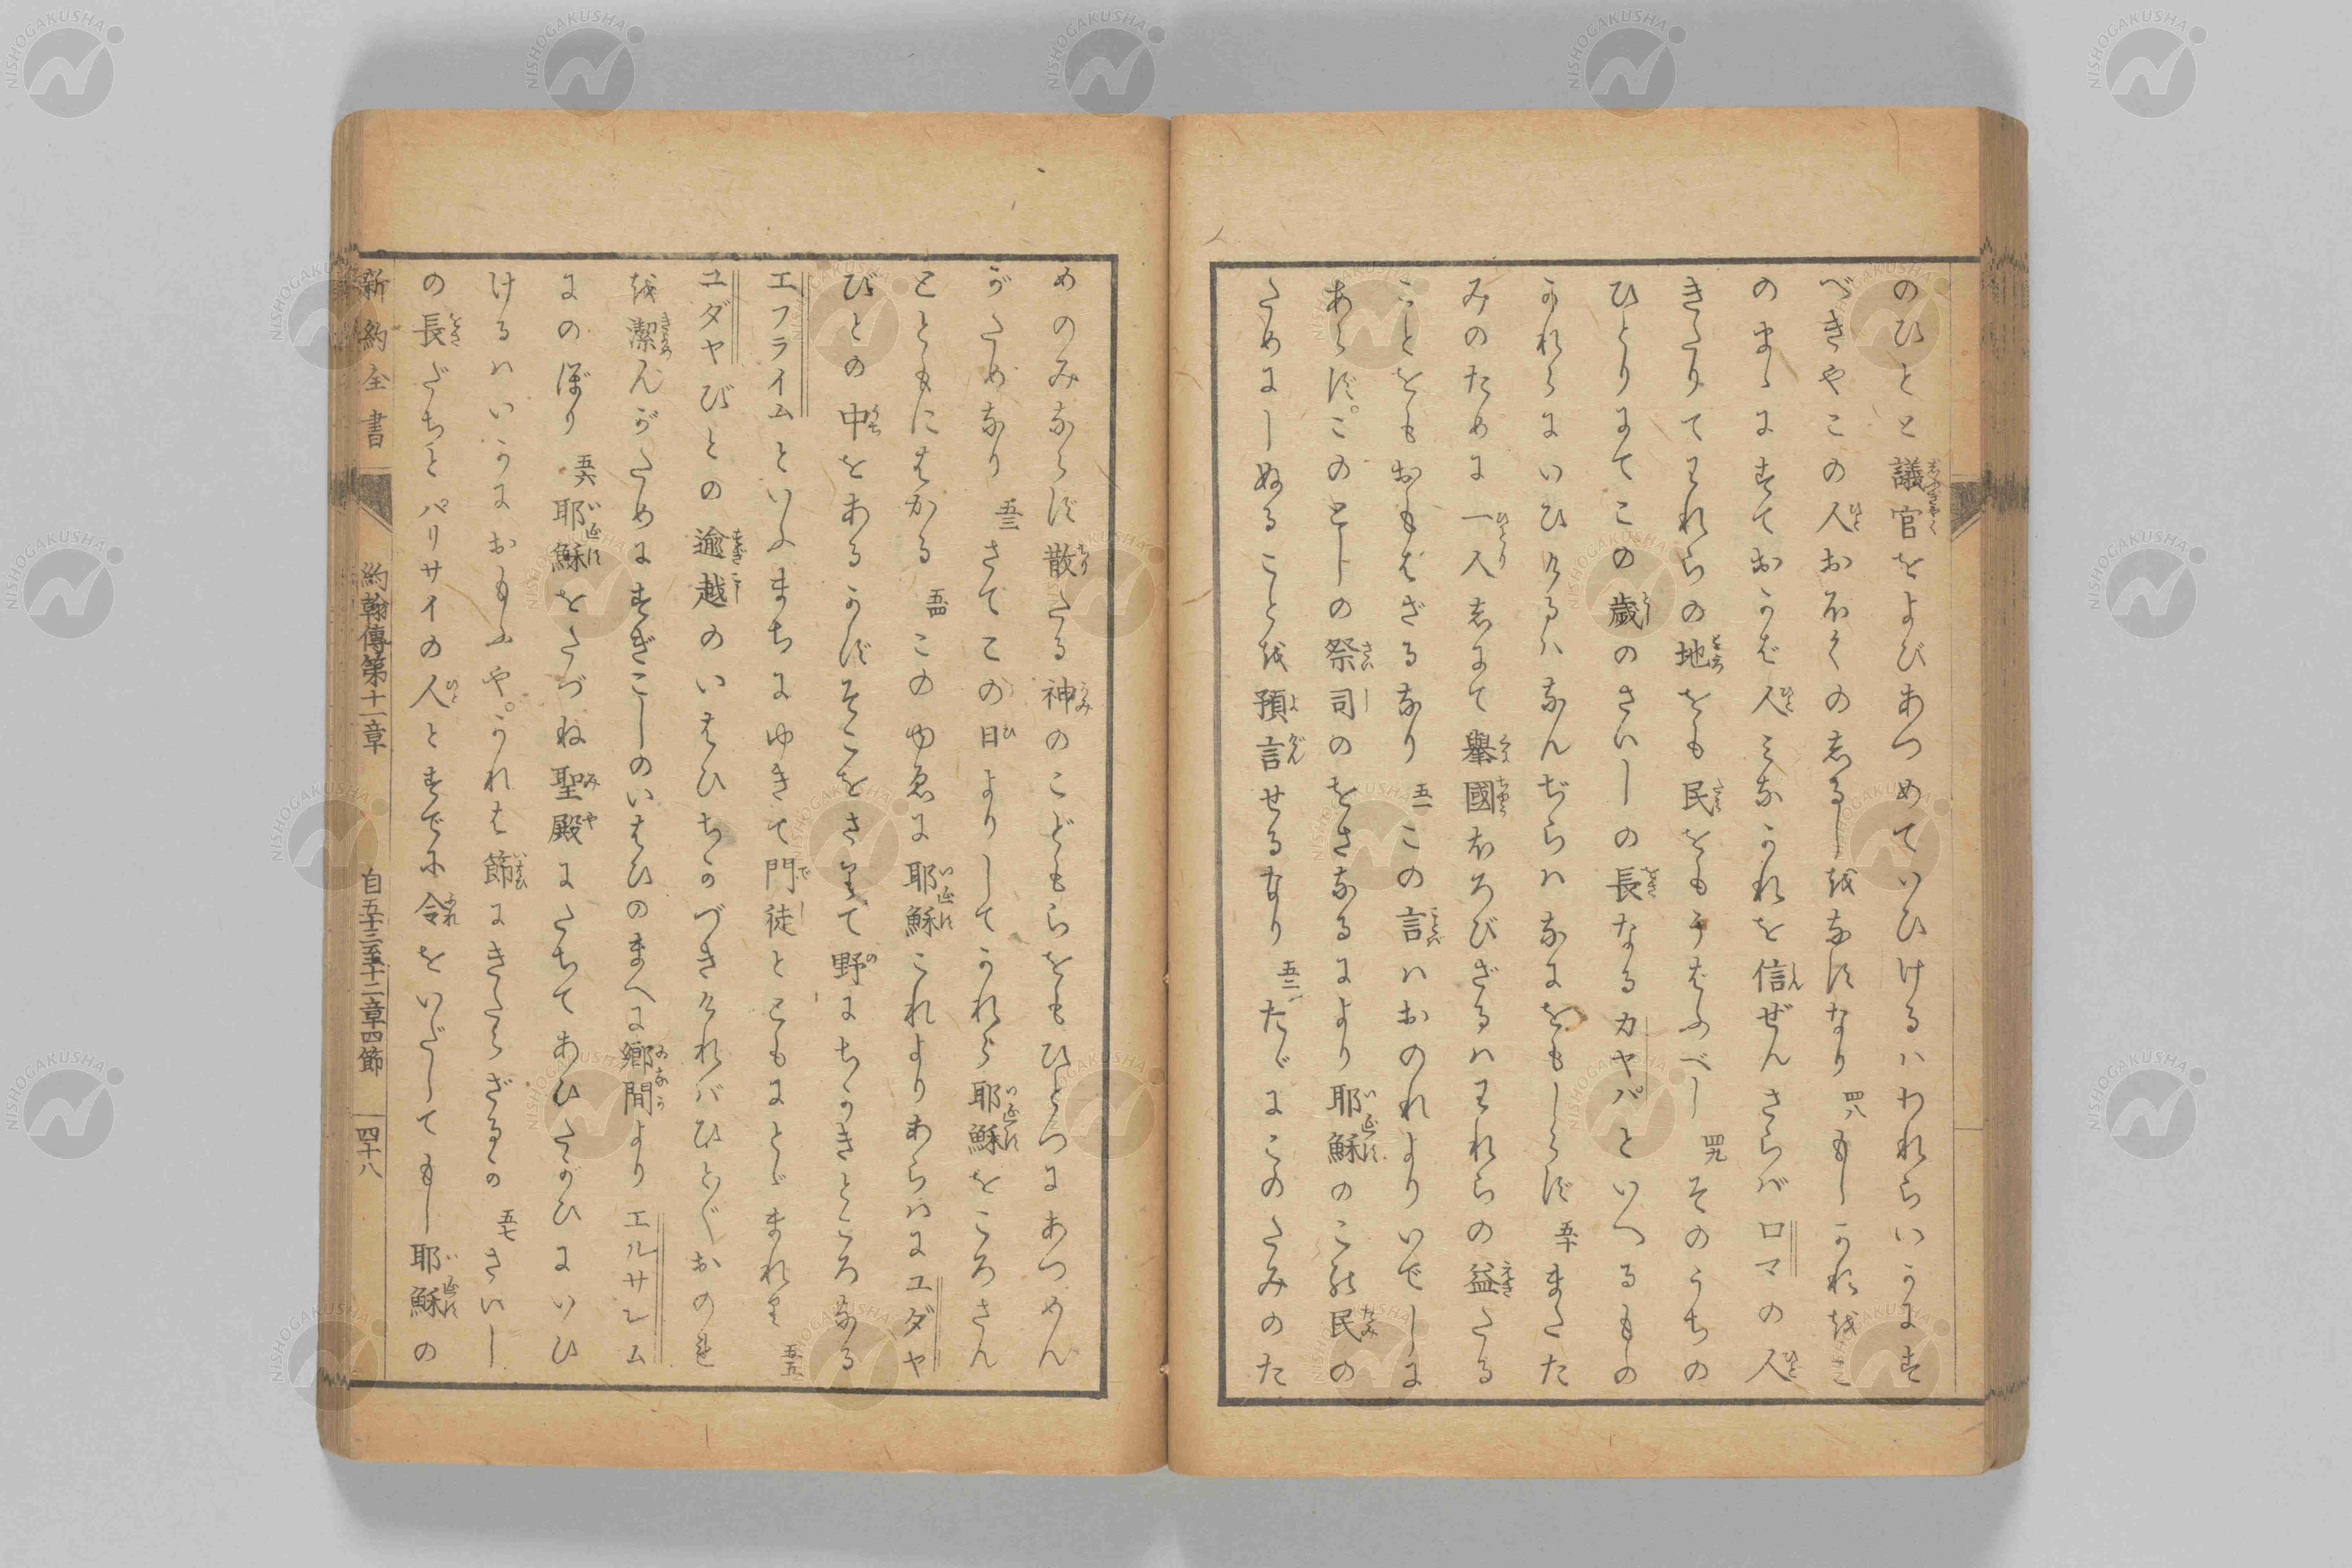 のひとと議官をよびあつめていひけるハわれらいかにす
べきやこの人おほくのしるしをなすなり 四八 もしかれをこ
のまゝにすておかば人みなかれを信ぜんさらバロマの人
きたりてわれらの地をも民をもうばふべし 四九 そのうちの
ひとりにてこの歳のさいしの長なるカヤパといへるもの
かれらにいひけるハなんぢらハなにをもしらず 五十 またた
みのために一人しにて舉國ほろびざるハわれらの益たる
ことをもおもはざるなり 五一 この言ハおのれよりいでしに
あらず。このとしの祭司のをさなるにより耶穌のこの民の
ためにしぬることを預言せるなり 五二 たゞにこのたみのた
めのみならず散たる神のこどもらをもひとつにあつめん
がためなり 五三 さてこの日よりしてかれら耶穌をころさん
とともにはかる 五四 このゆゑに耶穌これよりあらハにユダヤ
びとの中をあるかずそこをさりて野にちかきところなる
エフライムといふまちにゆきて門徒とともにとゞまれり 五五
ユダヤびとの逾越のいはひちかづきけれバひと〴〵おのれ
を潔んがためにすぎこしのいはひのまへに鄉間よりエルサレム
にのぼり 五六 耶穌をたづね聖殿にたちてあひたがひにいひ
けるハいかにおもふや。かれは節にきたらざるか 五七 さいし
の長だちとパリサイの人とすでに令をいだしてもし耶穌の
新約全書 約翰傳第十一章 自五十三至十二章四節 四十八